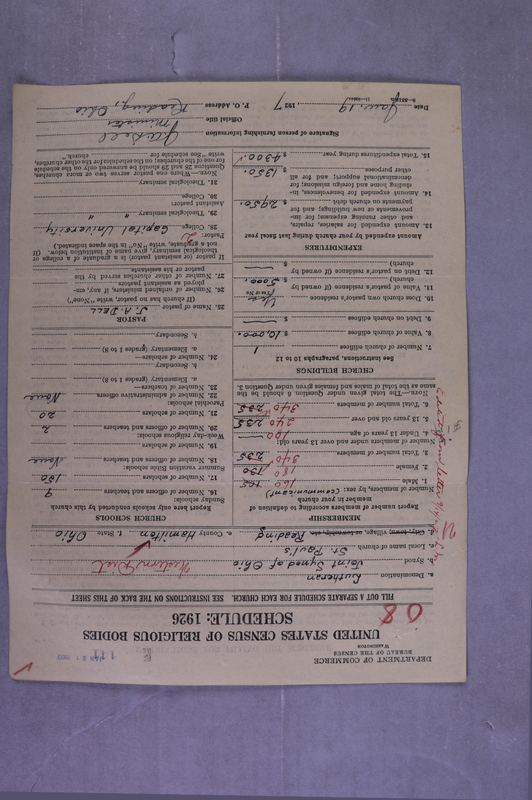 DEPARTMENT OF COMMERCE
BUREAU OF THE CENSUS
WASHINGTON
UNITED STATES CENSUS OF RELIGIOUS BODIES
SCHEDULE: 1926
08
FILL OUT A SEPARATE SCHEDULE FOR EACH CHURCH. SEE INSTRUCTIONS ON THE BACK OF THIS SHEET
a. Denomination Lutheran
b. Synod Joint Synod of Ohio Western Dist
c. Local name of church St. Paul's
d. City, town, village, or township, Reading e. County Hamilton f. State Ohio
MEMBERSHIP
Report number of members according to definition of member in your church
Number of members, by sex: (communicant)
1. Male 160 105
2. Female 180 130
3. Total number of members 340 235
Number of members under and over 13 years old:
4. Under 13 years of age 100
5. 13 years old and over 240 235
6. Total number of members 340 235
Note.—The total given under Question 6 should be the same as the total of males and females given under Question 3.
CHURCH BUILDINGS
See instructions, paragraphs 10 to 12
7. Number of church edifices 1
8. Value of church edifices $ 10,000.
9. Debt on church edifices $
10. Does church own pastor's residence Yes
(Yes or No)
11. Value of pastor's residence (if owned by church) $ 5000.
12. Debt on pastor's residence (if owned by church) $
EXPENDITURES
Amount expended by your church during last fiscal year
13. Amount expended for salaries, repairs, and other running expenses; for improvements or new buildings; and for payments on church debt $ 2950.
14. Amount expended for benevolences, including home and foreign missions; for denominational support; and for all other purposes $ 1350.
15. Total expenditures during year $ 4300.
CHURCH SCHOOLS
Report here only schools conducted by this church
Sunday schools:
16. Number of officers and teachers 9
17. Number of scholars 150
Summer vacation Bible schools:
18. Number of officers and teachers None
19. Number of scholars
Week-day religious schools:
20. Number of officers and teachers 2
21. Number of scholars 20
Parochial schools:
22. Number of administrative officers None
23. Number of teachers—
a. Elementary (grades 1 to 8)
b. Secondary
24. Number of scholars—
a. Elementary (grades 1 to 8)
b. Secondary
PASTOR
25. Name of pastor J. A. DELL
(If church has no pastor, write "None")
26. Number of ordained ministers, if any, employed as assistant pastors
27. Number of other churches served by the pastor or his assistants
If pastor or assistant pastor is a graduate of a college or theological seminary, give name of institution below. (If not a graduate, write "No" in the space indicated.)
Pastor:
28. College Capital University
29. Theological seminary " "
Assistant pastor:
30. College
31. Theological seminary
Note.—Where one pastor serves two or more churches, Questions 25 and 29 should be answered only on the schedule for one of the churches; on the schedules for the other churches, write "See schedule for church."
Signature of person furnishing information J. A. Dell
Official title Minister
Date Jan. 19, 1927 P. O. Address Reading, Ohio